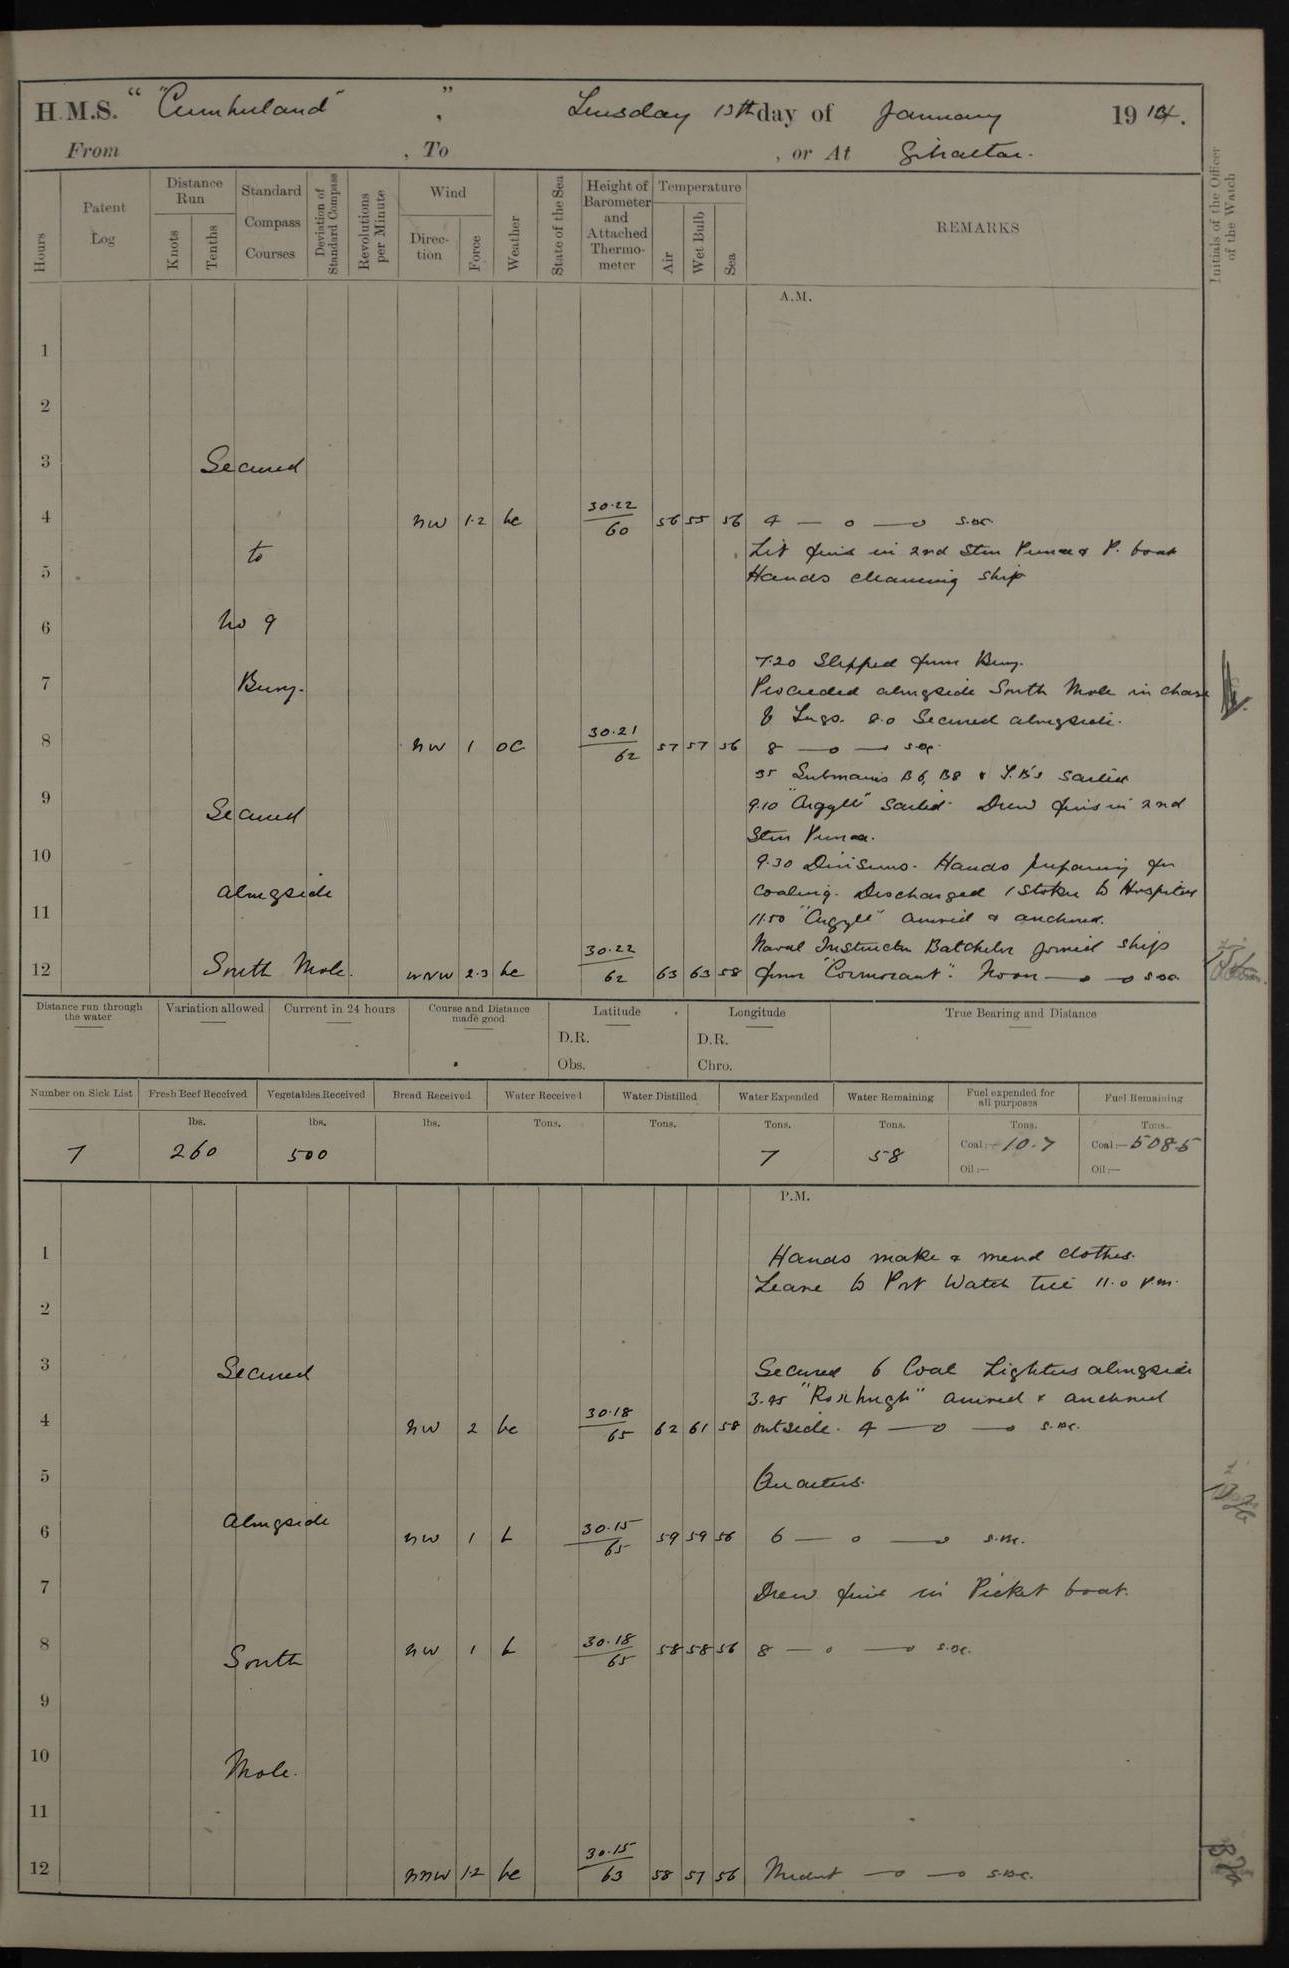 H.M.S. “ "Cumberland" „ Tuesday 13th day of January 1914.
From , To , or At Gibraltar.
Hours
Patent Log
Distance Run
Knots
Tenths
Standard Compass Courses
Deviation of Standard Compass
Revolutions per Minute
Wind
Direction
Force
Weather
State of the Sea
Height of Barometer and Attached Thermometer
Temperature
Air
Wet Bulb
Sea
REMARKS
Initials of the Officer of the Watch
A.M.
1
2
3 Secured
4 NW 1.2 bc 30.22/60 56 55 56 4 — o —o
to
Lit fires in 2nd Stm Pinnace & P. boat
5 Hands cleaning ship
6 No 9
7.20 Slipped from Buoy.
7 Buoy. Proceeded alongside South Mole in charge
of Tugs. 8.0 Secured alongside.
8 NW 1 oc 30.21/62 57 57 56 8 —o —
35 Submarines B6, B8 & T.B's sailed
9 Secured 9.10 "Argyll" sailed. Drew fires in 2nd
Stm Pinnace.
10 9.30 Divisions. Hands preparing for
alongside coaling. Discharged 1 Stoker to Hospital
11 11.50 "Argyll" arrived & anchored.
Naval Instructor Batchelor joined ship
12 South Mole. WNW 2.3 bc 30.22/62 63 63 58 from "Cormorant". Noon —o —o
Distance run through the water
Variation allowed
Current in 24 hours
Course and Distance made good
Latitude
D.R.
Obs.
Longitude
D.R.
Chro.
True Bearing and Distance
Number on Sick List
Fresh Beef Received
Vegetables Received
Bread Received
Water Received
Water Distilled
Water Expended
Water Remaining
Fuel expended for all purposes
Fuel Remaining
lbs. lbs. lbs. Tons. Tons. Tons. Tons. Tons. Tons.
7 260 500 7 58 Coal:— 10.7 Coal:— 508.5
Oil:— Oil:—
P.M.
1 Hands make & mend clothes.
Leave to Port Watch till 11.0 p.m.
2
3 Secured Secured 6 Coal Lighters alongside
3.45 "Roxburgh" arrived & anchored
4 NW 2 bc 30.18/65 62 61 58 outside. 4 —o —o
5 Quarters.
alongside
6 NW 1 b 30.15/65 59 59 56 6 — o —o
7 Drew fires in Picket boat.
8 South NW 1 b 30.18/65 58 58 56 8 — o —o
9
10 Mole.
11
12 NNW 1.2 bc 30.15/63 58 57 56 Midnt —o —o